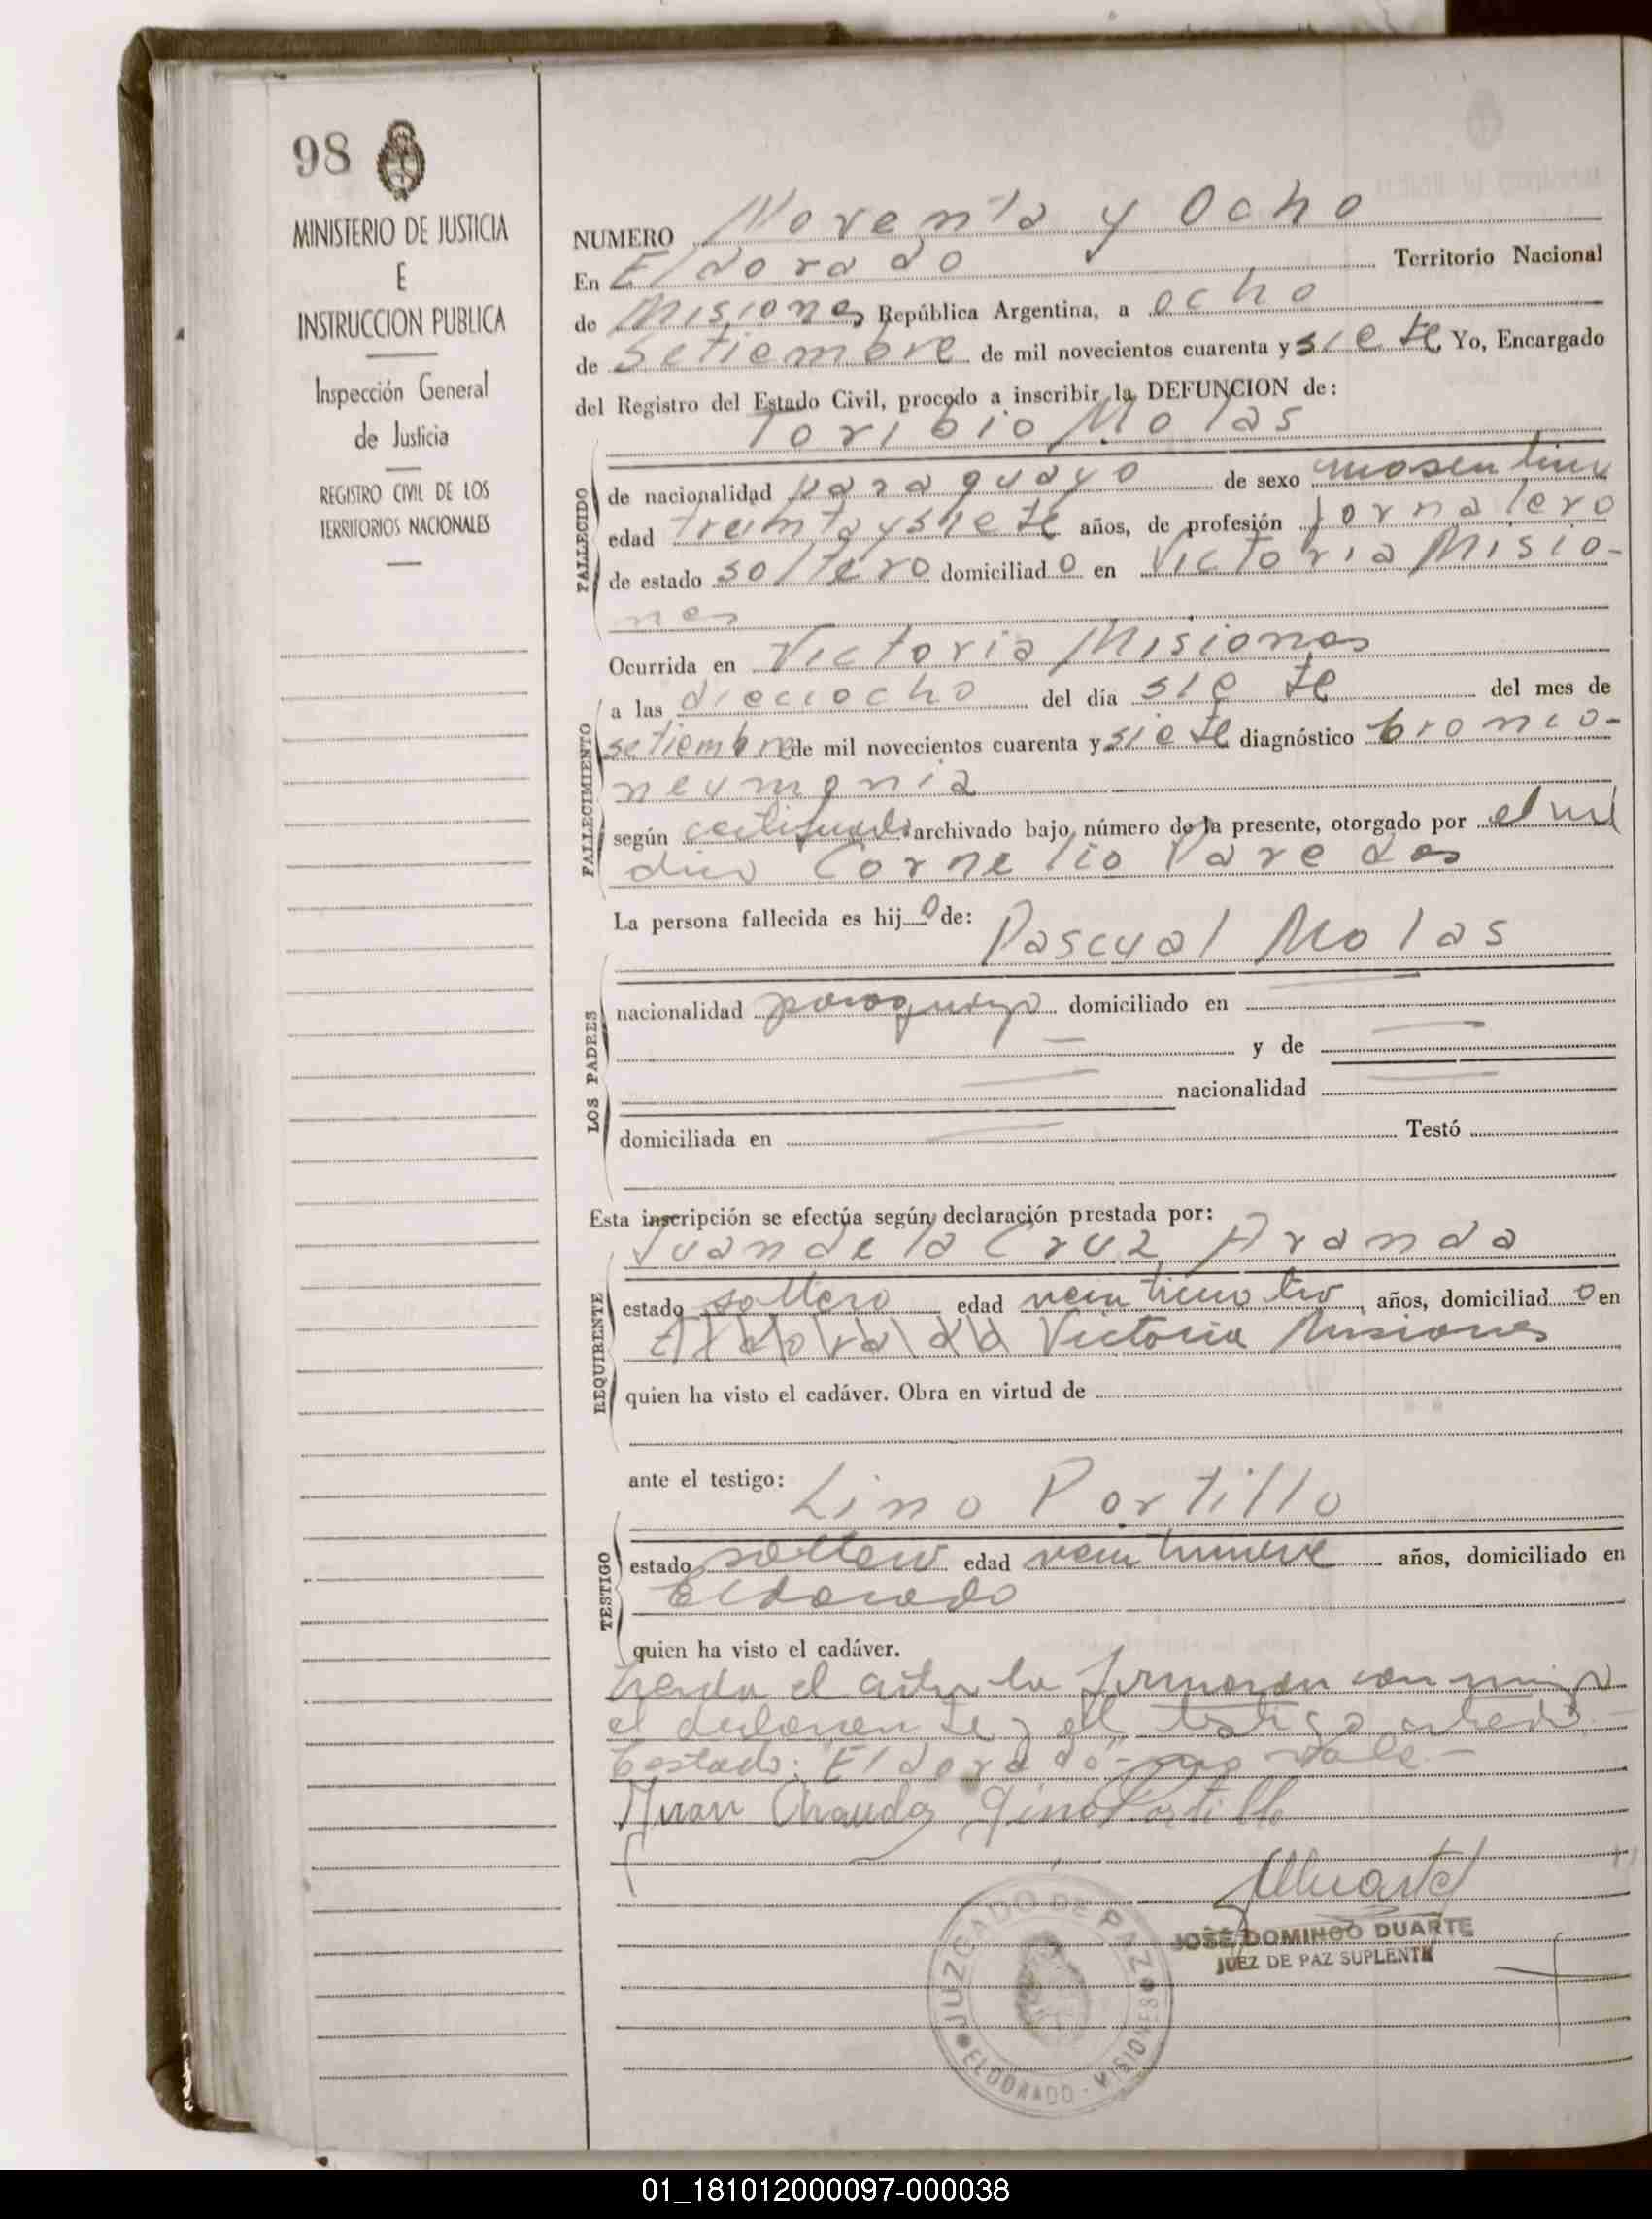 98
MINISTERIO DE JUSTICIA
E
INSTRUCCION PUBLICA
Inspección General
de Justicia
REGISTRO CIVIL DE LOS
TERRITORIOS NACIONALES
NUMERO Noventa y Ocho
En Eldorado Territorio Nacional
de Misiones República Argentina, a ocho
de Setiembre de mil novecientos cuarenta y siete Yo, Encargado
del Registro del Estado Civil, procedo a inscribir la DEFUNCION de:
Toribio Molas
FALLECIDO
de nacionalidad paraguayo de sexo masculino
edad treinta y siete años, de profesión Jornalero
de estado soltero domiciliado en Victoria Misio-
nes
FALLECIMIENTO
Ocurrida en Victoria Misiones
a las dieciocho del día siete del mes de
setiembre de mil novecientos cuarenta y siete diagnóstico bronco-
neumonia
según certificado archivado bajo número de la presente, otorgado por el mé
dico Cornelio Paredes
La persona fallecida es hijo de:
Pascual Molas
LOS PADRES
nacionalidad paraguayo domiciliado en
y de
nacionalidad
domiciliada en Testó
Esta inscripción se efectúa según declaración prestada por:
Juan de la Cruz Aranda
REQUIRENTE
estado soltero edad veinticuatro años, domiciliado en
Eldorado Victoria Misiones
quien ha visto el cadáver. Obra en virtud de
ante el testigo:
Lino Portillo
TESTIGO
estado soltero edad veintinueve años, domiciliado en
Eldorado
quien ha visto el cadáver.
el acta la firmaron conmigo
el declarante y el testigo
testado: "Eldorado" no vale-
Juan Aranda Lino Portillo
JOSÉ DOMINGO DUARTE
JUEZ DE PAZ SUPLENTE
JUZGADO DE PAZ
ELDORADO - MISIONES
01_181012000097-000038